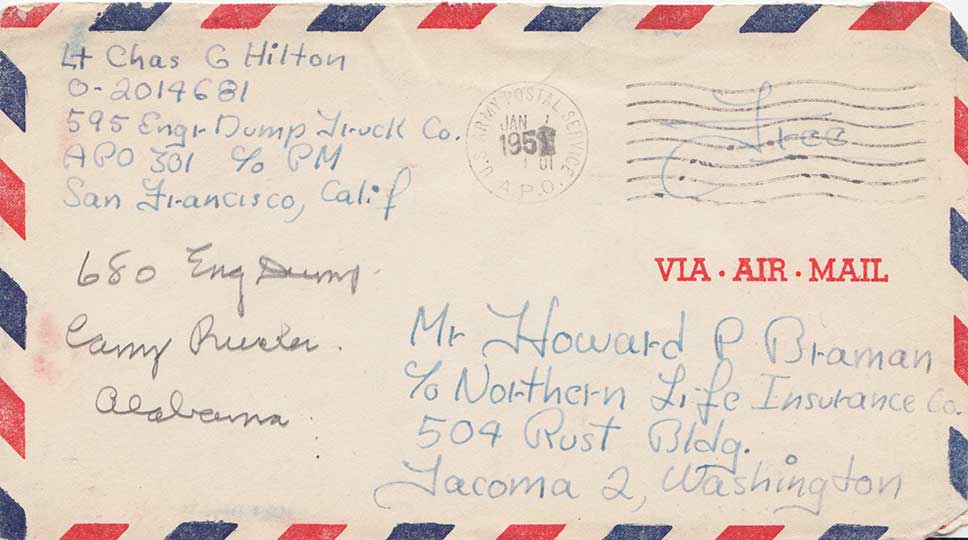 Lt Chas G Hilton
O-2014681
595 Engr Dump Truck Co.
APO 301 c/o PM
San Francisco, Calif
U.S. ARMY POSTAL SERVICE
JAN
195
A.P.O.
Free
680 Eng Dump
Camp
Alabama
VIA · AIR · MAIL
Mr Howard P Braman
c/o Northern Life Insurance Co.
504 Rust Bldg.
Tacoma 2, Washington